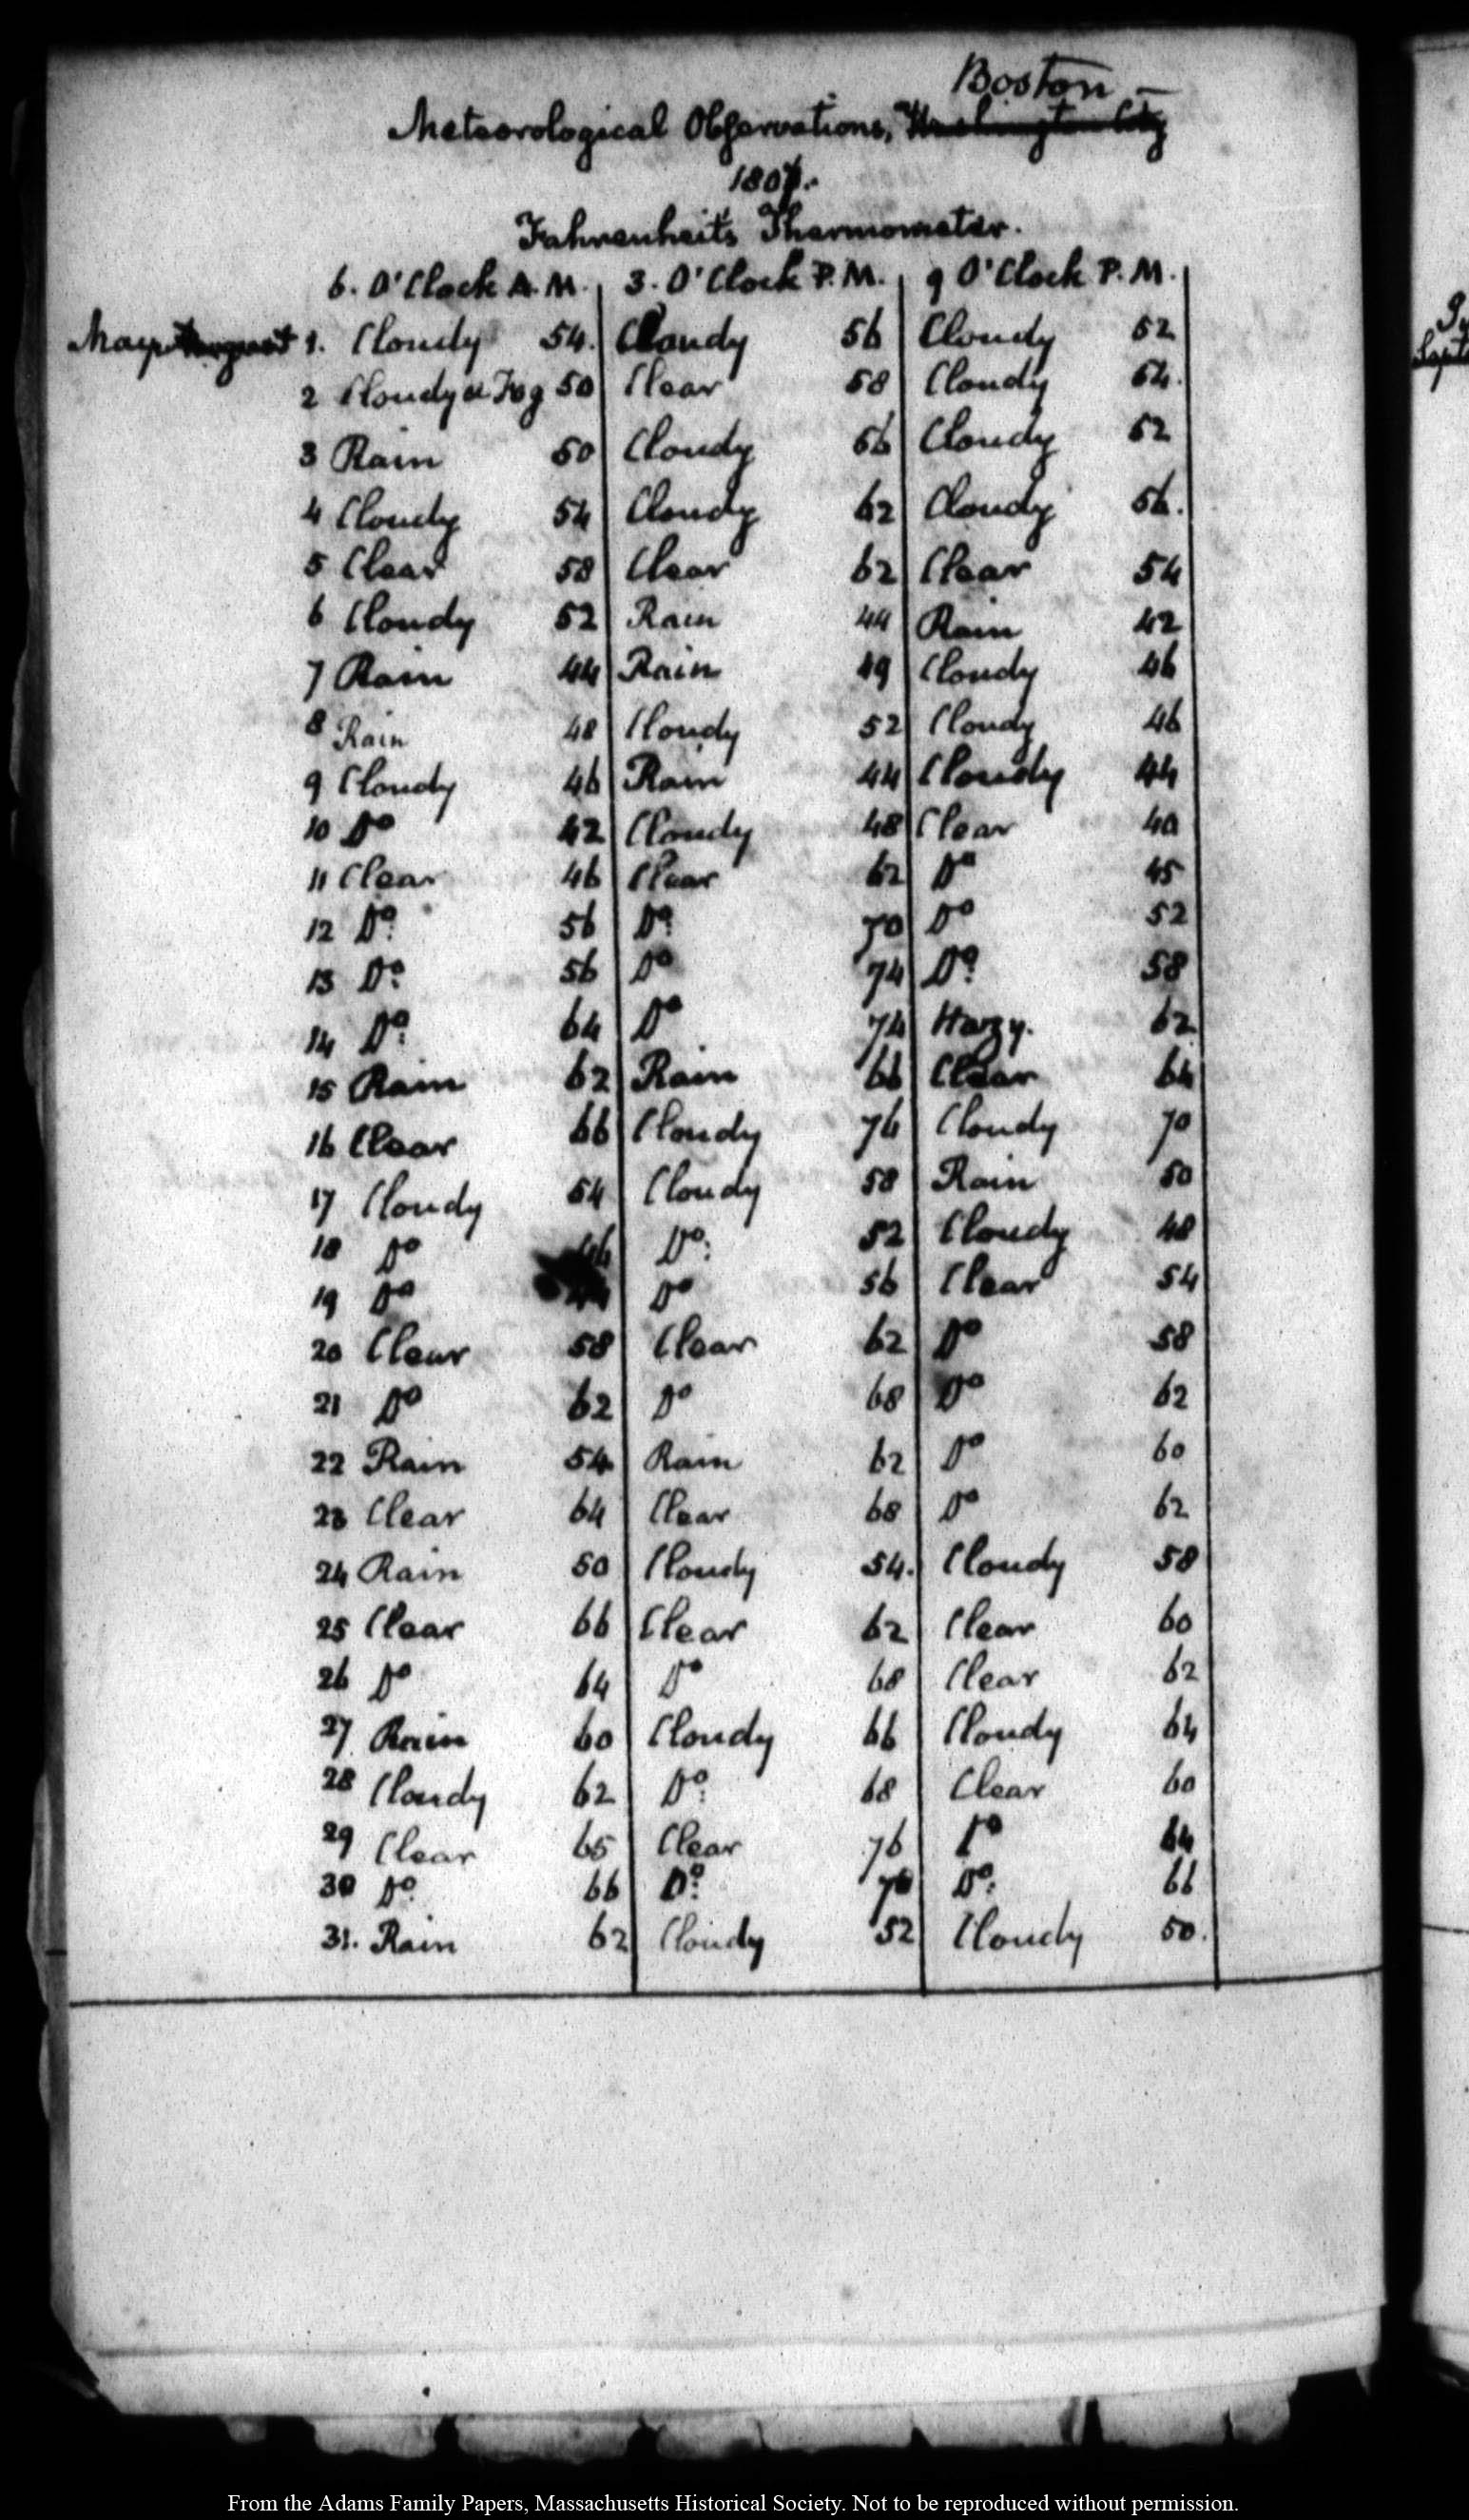 Boston –
Meteorological Observations, Washington City
1807.
Fahrenheit's Thermometer.
6. O'Clock A.M. 3. O'Clock P.M. 9 O'Clock P.M.
May 1. Cloudy 54. Cloudy 56 Cloudy 52
2 Cloudy & Fog 50 Clear 58 Cloudy 54.
3 Rain 50 Cloudy 56 Cloudy 52
4 Cloudy 54 Cloudy 62 Cloudy 56.
5 Clear 58 Clear 62 Clear 54
6 Cloudy 52 Rain 44 Rain 42
7 Rain 44 Rain 49 Cloudy 46
8 Rain 48 Cloudy 52 Cloudy 46
9 Cloudy 46 Rain 44 Cloudy 44
10 Do 42 Cloudy 48 Clear 40
11 Clear 46 Clear 62 Do 45
12 Do 56 Do 70 Do 52
13 Do 56 Do 74 Do 58
14 Do 64 Do 74 Hazy. 62
15 Rain 62 Rain 66 Clear 64
16 Clear 66 Cloudy 76 Cloudy 70
17 Cloudy 54 Cloudy 58 Rain 50
18 Do 46 Do 52 Cloudy 48
19 Do Do 56 Clear 54
20 Clear 58 Clear 62 Do 58
21 Do 62 Do 68 Do 62
22 Rain 54 Rain 62 Do 60
23 Clear 64 Clear 68 Do 62
24 Rain 50 Cloudy 54. Cloudy 58
25 Clear 66 Clear 62 Clear 60
26 Do 64 Do 68 Clear 62
27 Rain 60 Cloudy 66 Cloudy 64
28 Cloudy 62 Do 68 Clear 60
29 Clear 65 Clear 76 Do 64
30 Do 66 Do Do 66
31. Rain 62 Cloudy 52 Cloudy 50.
From the Adams Family Papers, Massachusetts Historical Society. Not to be reproduced without permission.